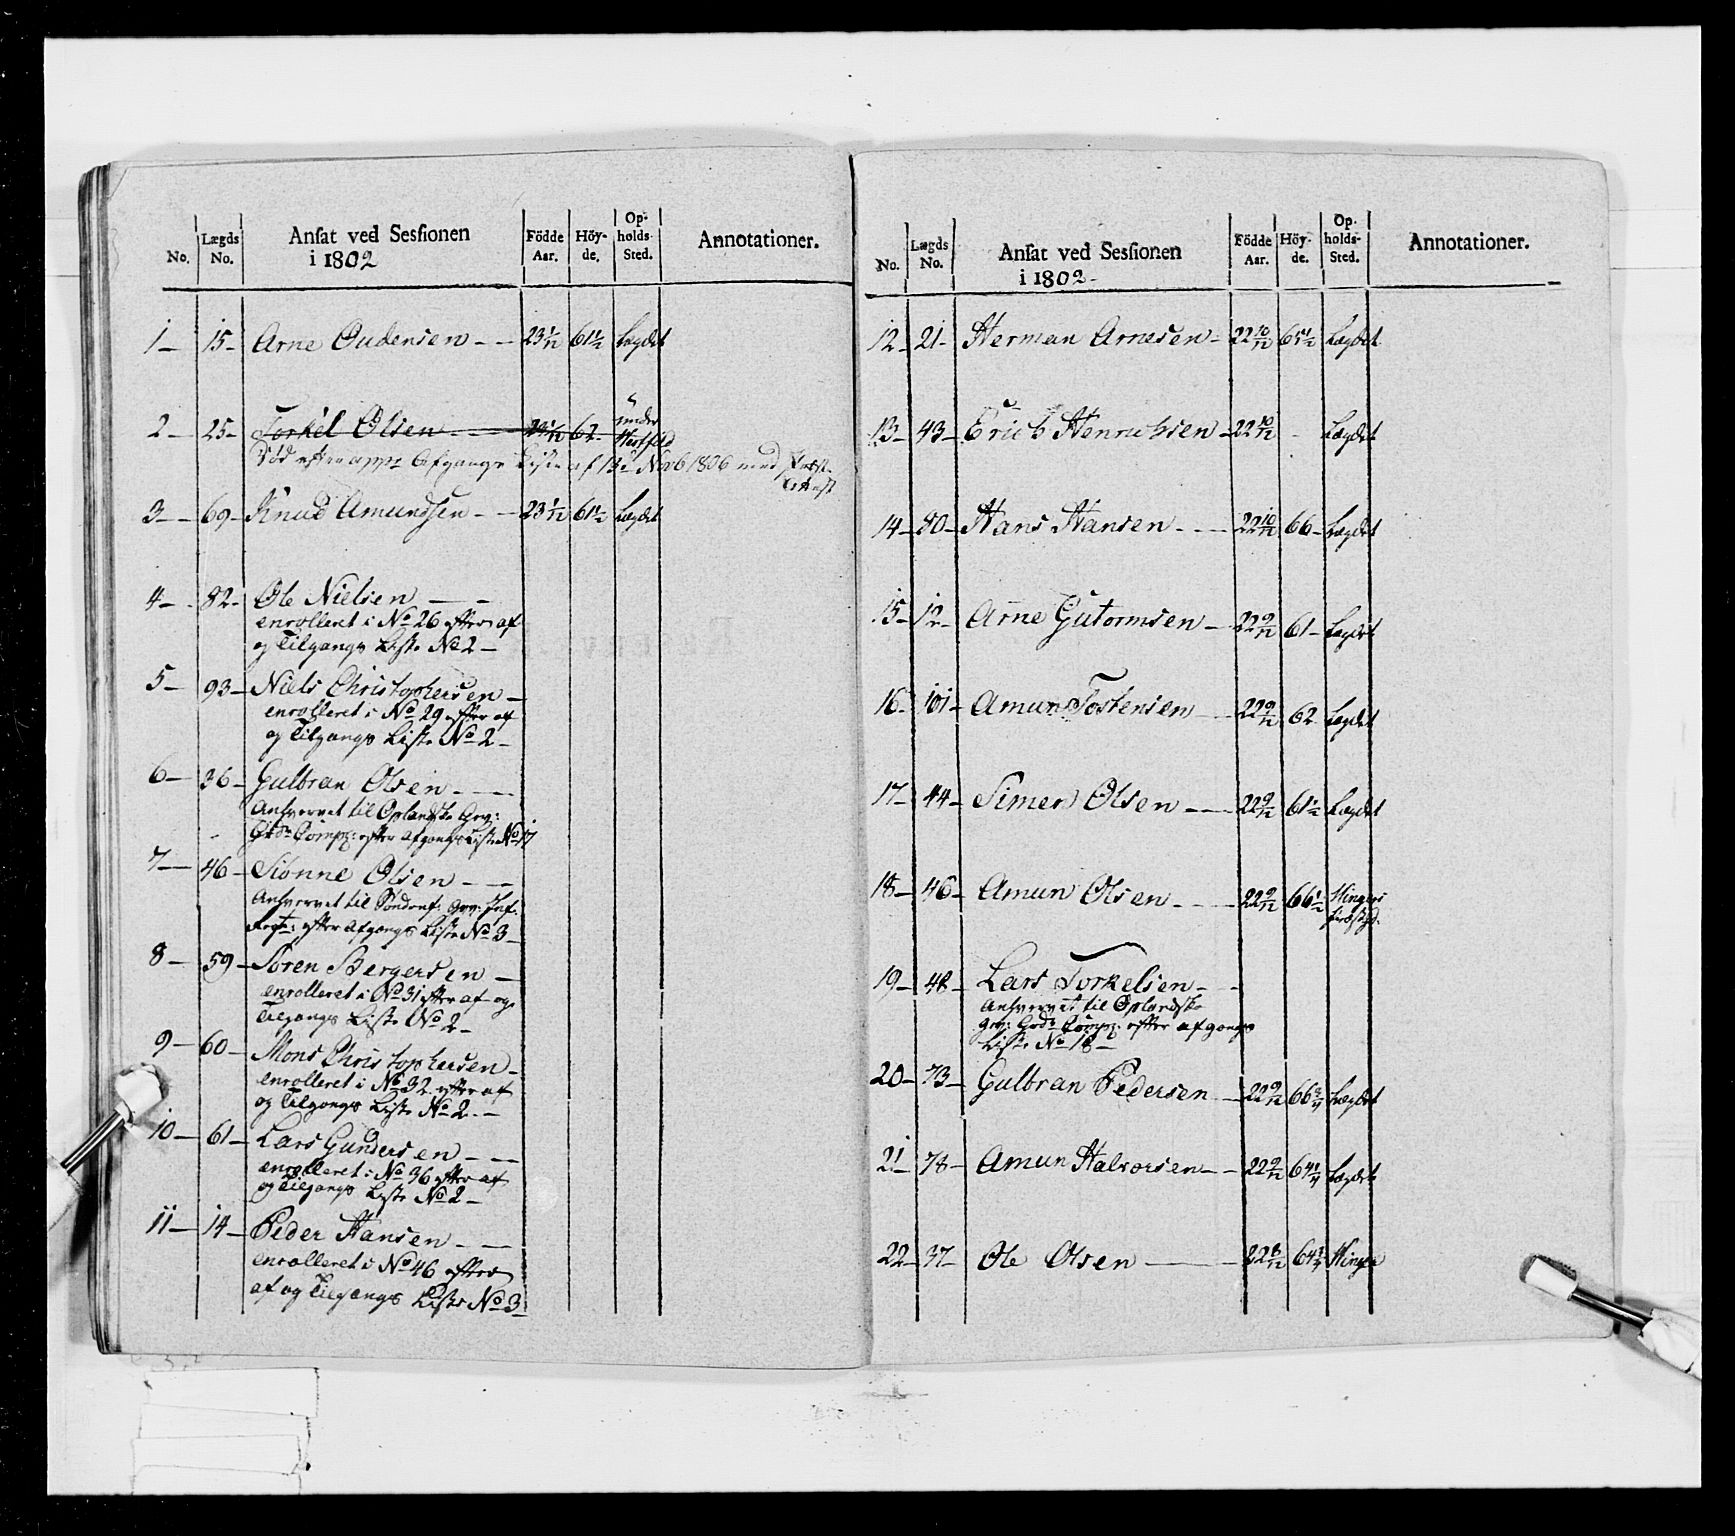 No. Lægds No. Ansat ved Sessionen i 1802 Födde Aar. Höyde. Opholds-Sted. Annotationer.
1 15 Arne Oudensen 23 1/12 61 1/2 Lægdet
2 25 Torkel Olsen 23 1/12 62
Död efter Afgangs Liste af 13 Novb 1806 med
3 69 Knud Amundsen 23 1/12 61 1/2 Lægdet
4 82 Ole Nielsen
enrolleret i No 26 efter af
og Tilgangs Liste No 2
5 93 Niels Christophersen
enrolleret i No 29 efter af
og Tilgangs Liste No 2
6 36 Gulbran Olsen
Anhvervet til Oplandske Gev:
Comp: efter Afgangs Liste No 17
7 46 Sionne Olsen
Anhvervet til Söndenf: Gev: Inf:
Regt: efter Afgangs Liste No 3
8 59 Sören Bergersen
enrolleret i No 31 efter af og
Tilgangs Liste No 2
9 60 Mons Christophersen
enrolleret i No 32 efter af
og Tilgangs Liste No 2
10 61 Lars Gundersen
enrolleret i No 36 efter af
og Tilgangs Liste No 2
11 14 Peder Hansen
enrolleret i No 46 efter
af og Tilgangs Liste No 3
No. Lægds No. Ansat ved Sessionen i 1802 Födde Aar. Höyde. Opholds-Sted. Annotationer.
12 21 Herman Arnesen 22 10/12 65 1/2 Lægdet
13 43 Erich Henrichsen 22 10/12 Lægdet
14 80 Hans Hansen 22 10/12 66 Lægdet
15 12 Arne Gutormsen 22 9/12 61 Lægdet
16 101 Amun Tostensen 22 9/12 62 Lægdet
17 44 Simen Olsen 22 9/12 61 1/2 Lægdet
18 46 Amun Olsen 22 9/12 66 1/2
19 48 Lars Torkelsen
Anhvervet til Oplandske
Gev: Comp: efter afgangs
Liste No 18
20 73 Gulbran Pedersen 22 9/12 66 3/4 Lægdet
21 78 Amun Halvorsen 22 9/12 64 1/4 Lægdet
22 37 Ole Olsen 22 8/12 64 3/4